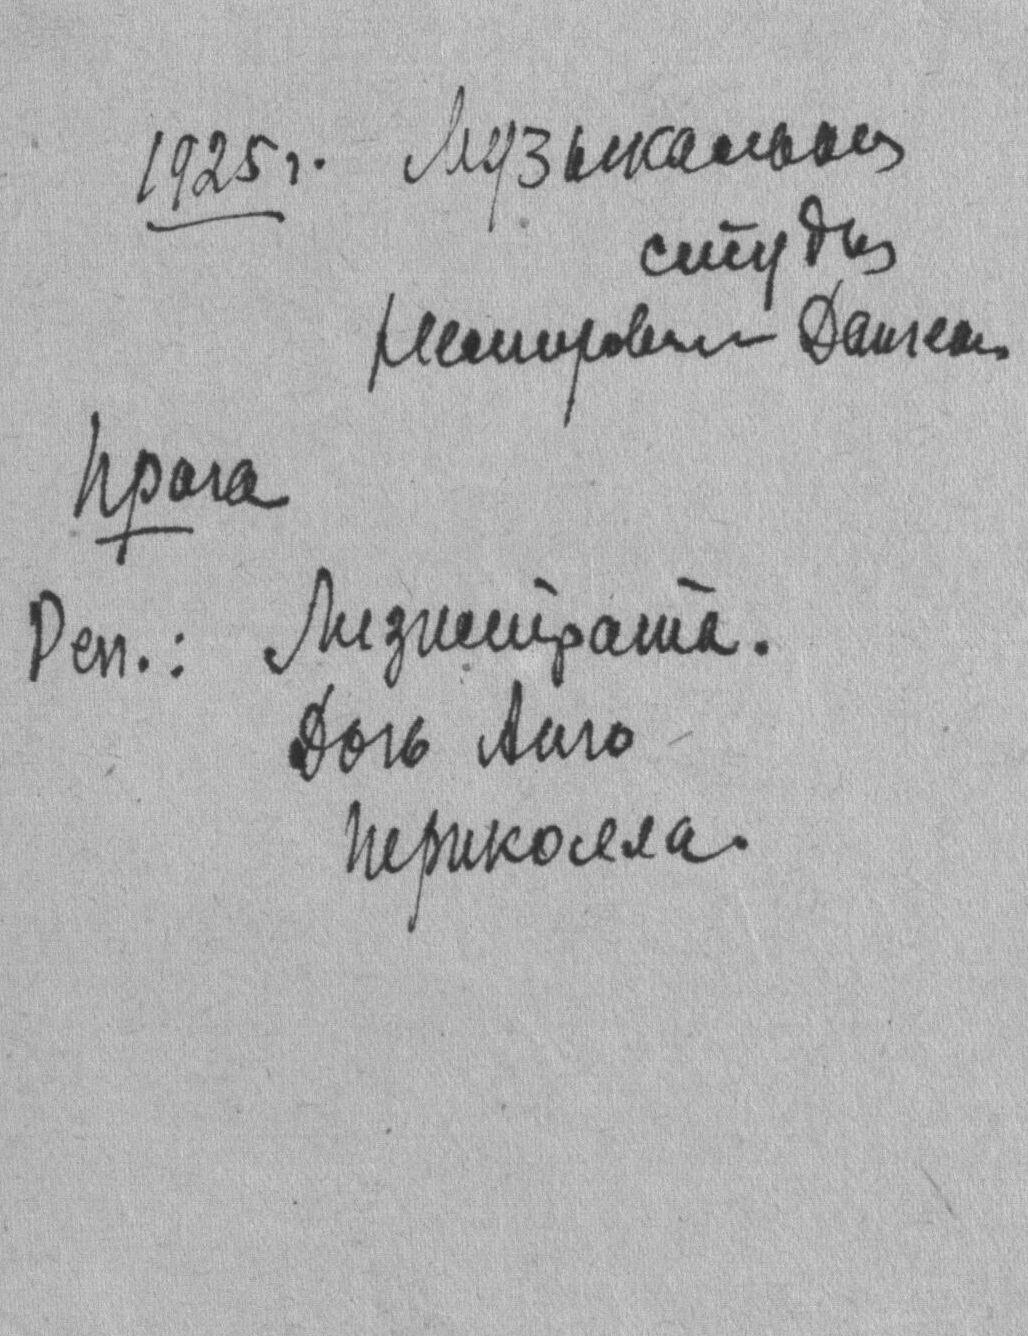 1925 г. Музыкальная
студия
Немирович Данченко.
Прага
Реп.: Лизистрата.
Дочь Анго
Периколла.